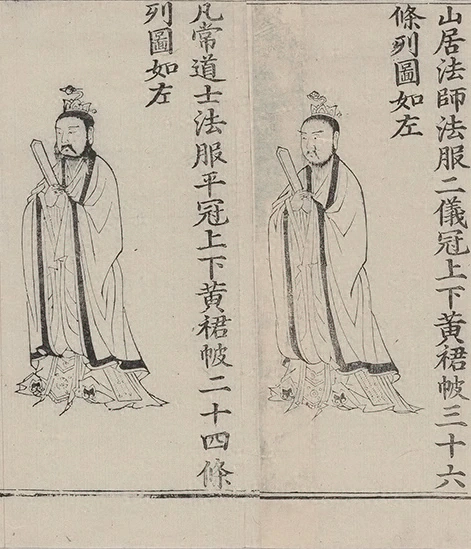 山居法師法服二儀冠上下黃裙帔三十六
條列圖如左
凡常道士法服平冠上下黃裙帔二十四條
列圖如左